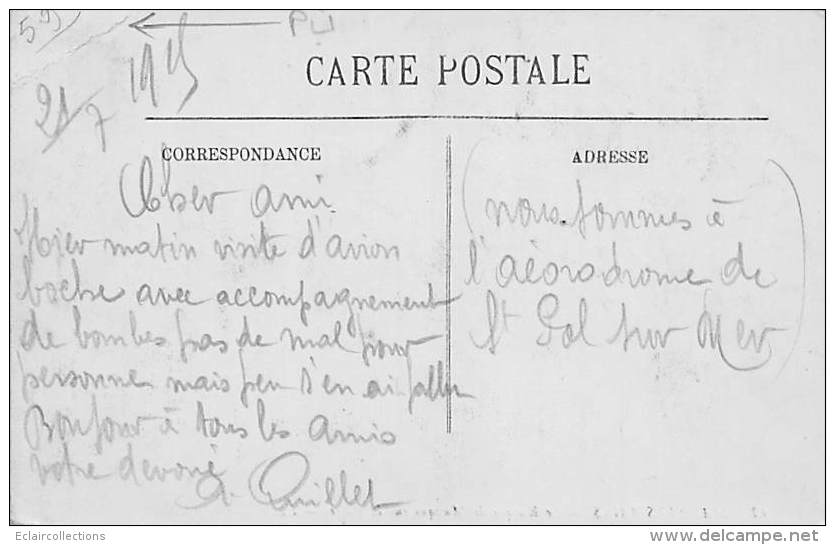 59
21/7 1915
CARTE POSTALE
CORRESPONDANCE
ADRESSE
Cher ami
Hier matin visite d'avion
boche avec accompagnement
de bombes pas de mal pour
personne mais peu s'en ai fallu
Bonjour à tous les amis
votre dévoué
A. Quillet
(nous sommes à
l'aérodrome de
St Pol sur Mer)
Eclaircollections
www.delcampe.net